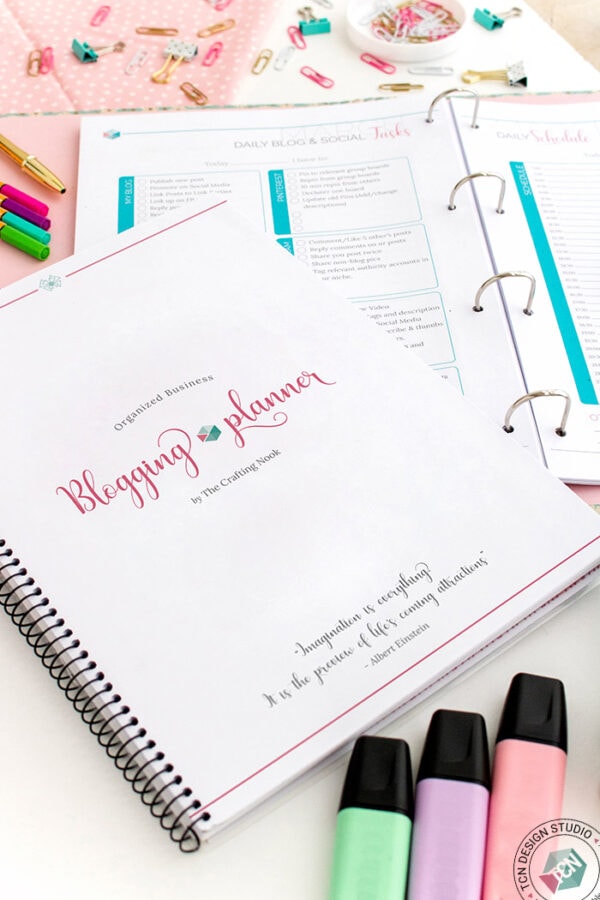 DAILY BLOG & SOCIAL Tasks
Today
I have to:
MY BLOG
Publish new post
Promote on Social Media
Link Posts to Link
Link up on FB
Reply
PINTEREST
Pin to relevant group boards
Repin from group boards
10 min repin from others
Declutter one board
Update old Pins(Add/change
description)
Comment/Like 5 other's posts
Reply comments on ur posts
Share you post twice
Share non-blog pics
Tag relevant authority accounts in
ur niche.
Video
tags and description
Social Media
& thumbs
DAILY Schedule
SCHEDULE
Organized Business
Blogging planner
by The Crafting Nook
"Imagination is everything.
It is the preview of life's coming attractions"
- Albert Einstein
TCN DESIGN STUDIO
TCN